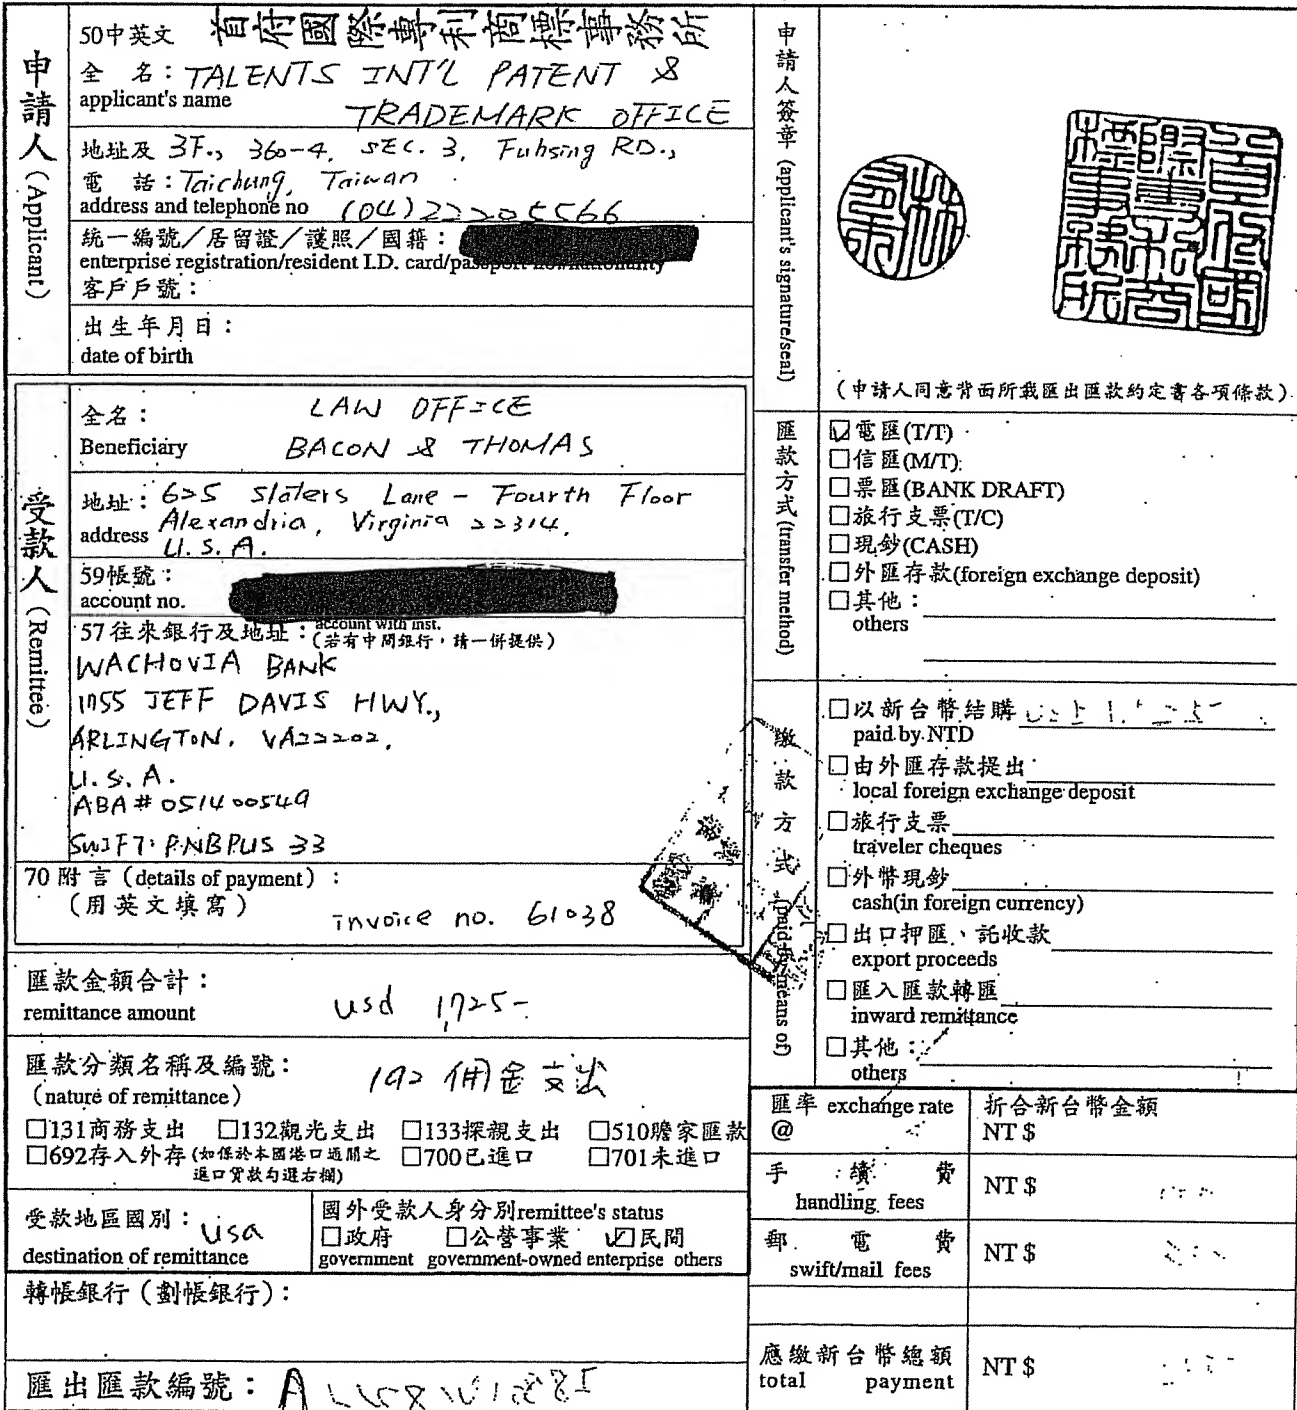 申請人 (Applicant)
50中英文 首府國際專利商標事務所
全 名：TALENTS INT'L PATENT &
applicant's name TRADEMARK OFFICE
地址及 3F., 360-4, SEC. 3, Fuhsing RD.,
電 話：Taichung, Taiwan
address and telephone no (04)22205566
統一編號／居留證／護照／國籍：
enterprise registration/resident I.D. card/passport no./nationality
客戶戶號：
出生年月日：
date of birth
受款人 (Remittee)
全名： LAW OFFICE
Beneficiary BACON & THOMAS
地址：625 Slaters Lane - Fourth Floor
address Alexandria, Virginia 22314.
U.S.A.
59帳號：
account no.
57往來銀行及地址：account with inst.
(若有中間銀行，請一併提供)
WACHOVIA BANK
1755 JEFF DAVIS HWY.,
ARLINGTON, VA22202,
U.S.A.
ABA# 051400549
SWIFT: PNBPUS 33
70附言 (details of payment)：
(用英文填寫)
invoice no. 61038
匯款金額合計：
remittance amount usd 1,725-
匯款分類名稱及編號：
(nature of remittance) 192 佣金支出
□131商務支出 □132觀光支出 □133探親支出 □510贍家匯款
□692存入外存(如係於本國港口通關之 □700已進口 □701未進口
進口貨款勾選右欄)
受款地區國別：usa
destination of remittance
國外受款人身分別remittee's status
□政府 □公營事業 ☑民間
government government-owned enterprise others
轉帳銀行（劃帳銀行）：
匯出匯款編號：
申請人簽章 (applicant's signature/seal)
(申請人同意背面所載匯出匯款約定書各項條款)
匯款方式 (transfer method)
☑電匯(T/T)
□信匯(M/T)
□票匯(BANK DRAFT)
□旅行支票(T/C)
□現鈔(CASH)
□外匯存款(foreign exchange deposit)
□其他：
others
繳款方式 (paid by means of)
□以新台幣結購
paid by NTD
□由外匯存款提出
local foreign exchange deposit
□旅行支票
traveler cheques
□外幣現鈔
cash(in foreign currency)
□出口押匯、託收款
export proceeds
□匯入匯款轉匯
inward remittance
□其他：
others
匯率 exchange rate
@
折合新台幣金額
NT $
手續費
handling fees
NT $
郵電費
swift/mail fees
NT $
應繳新台幣總額
total payment
NT $